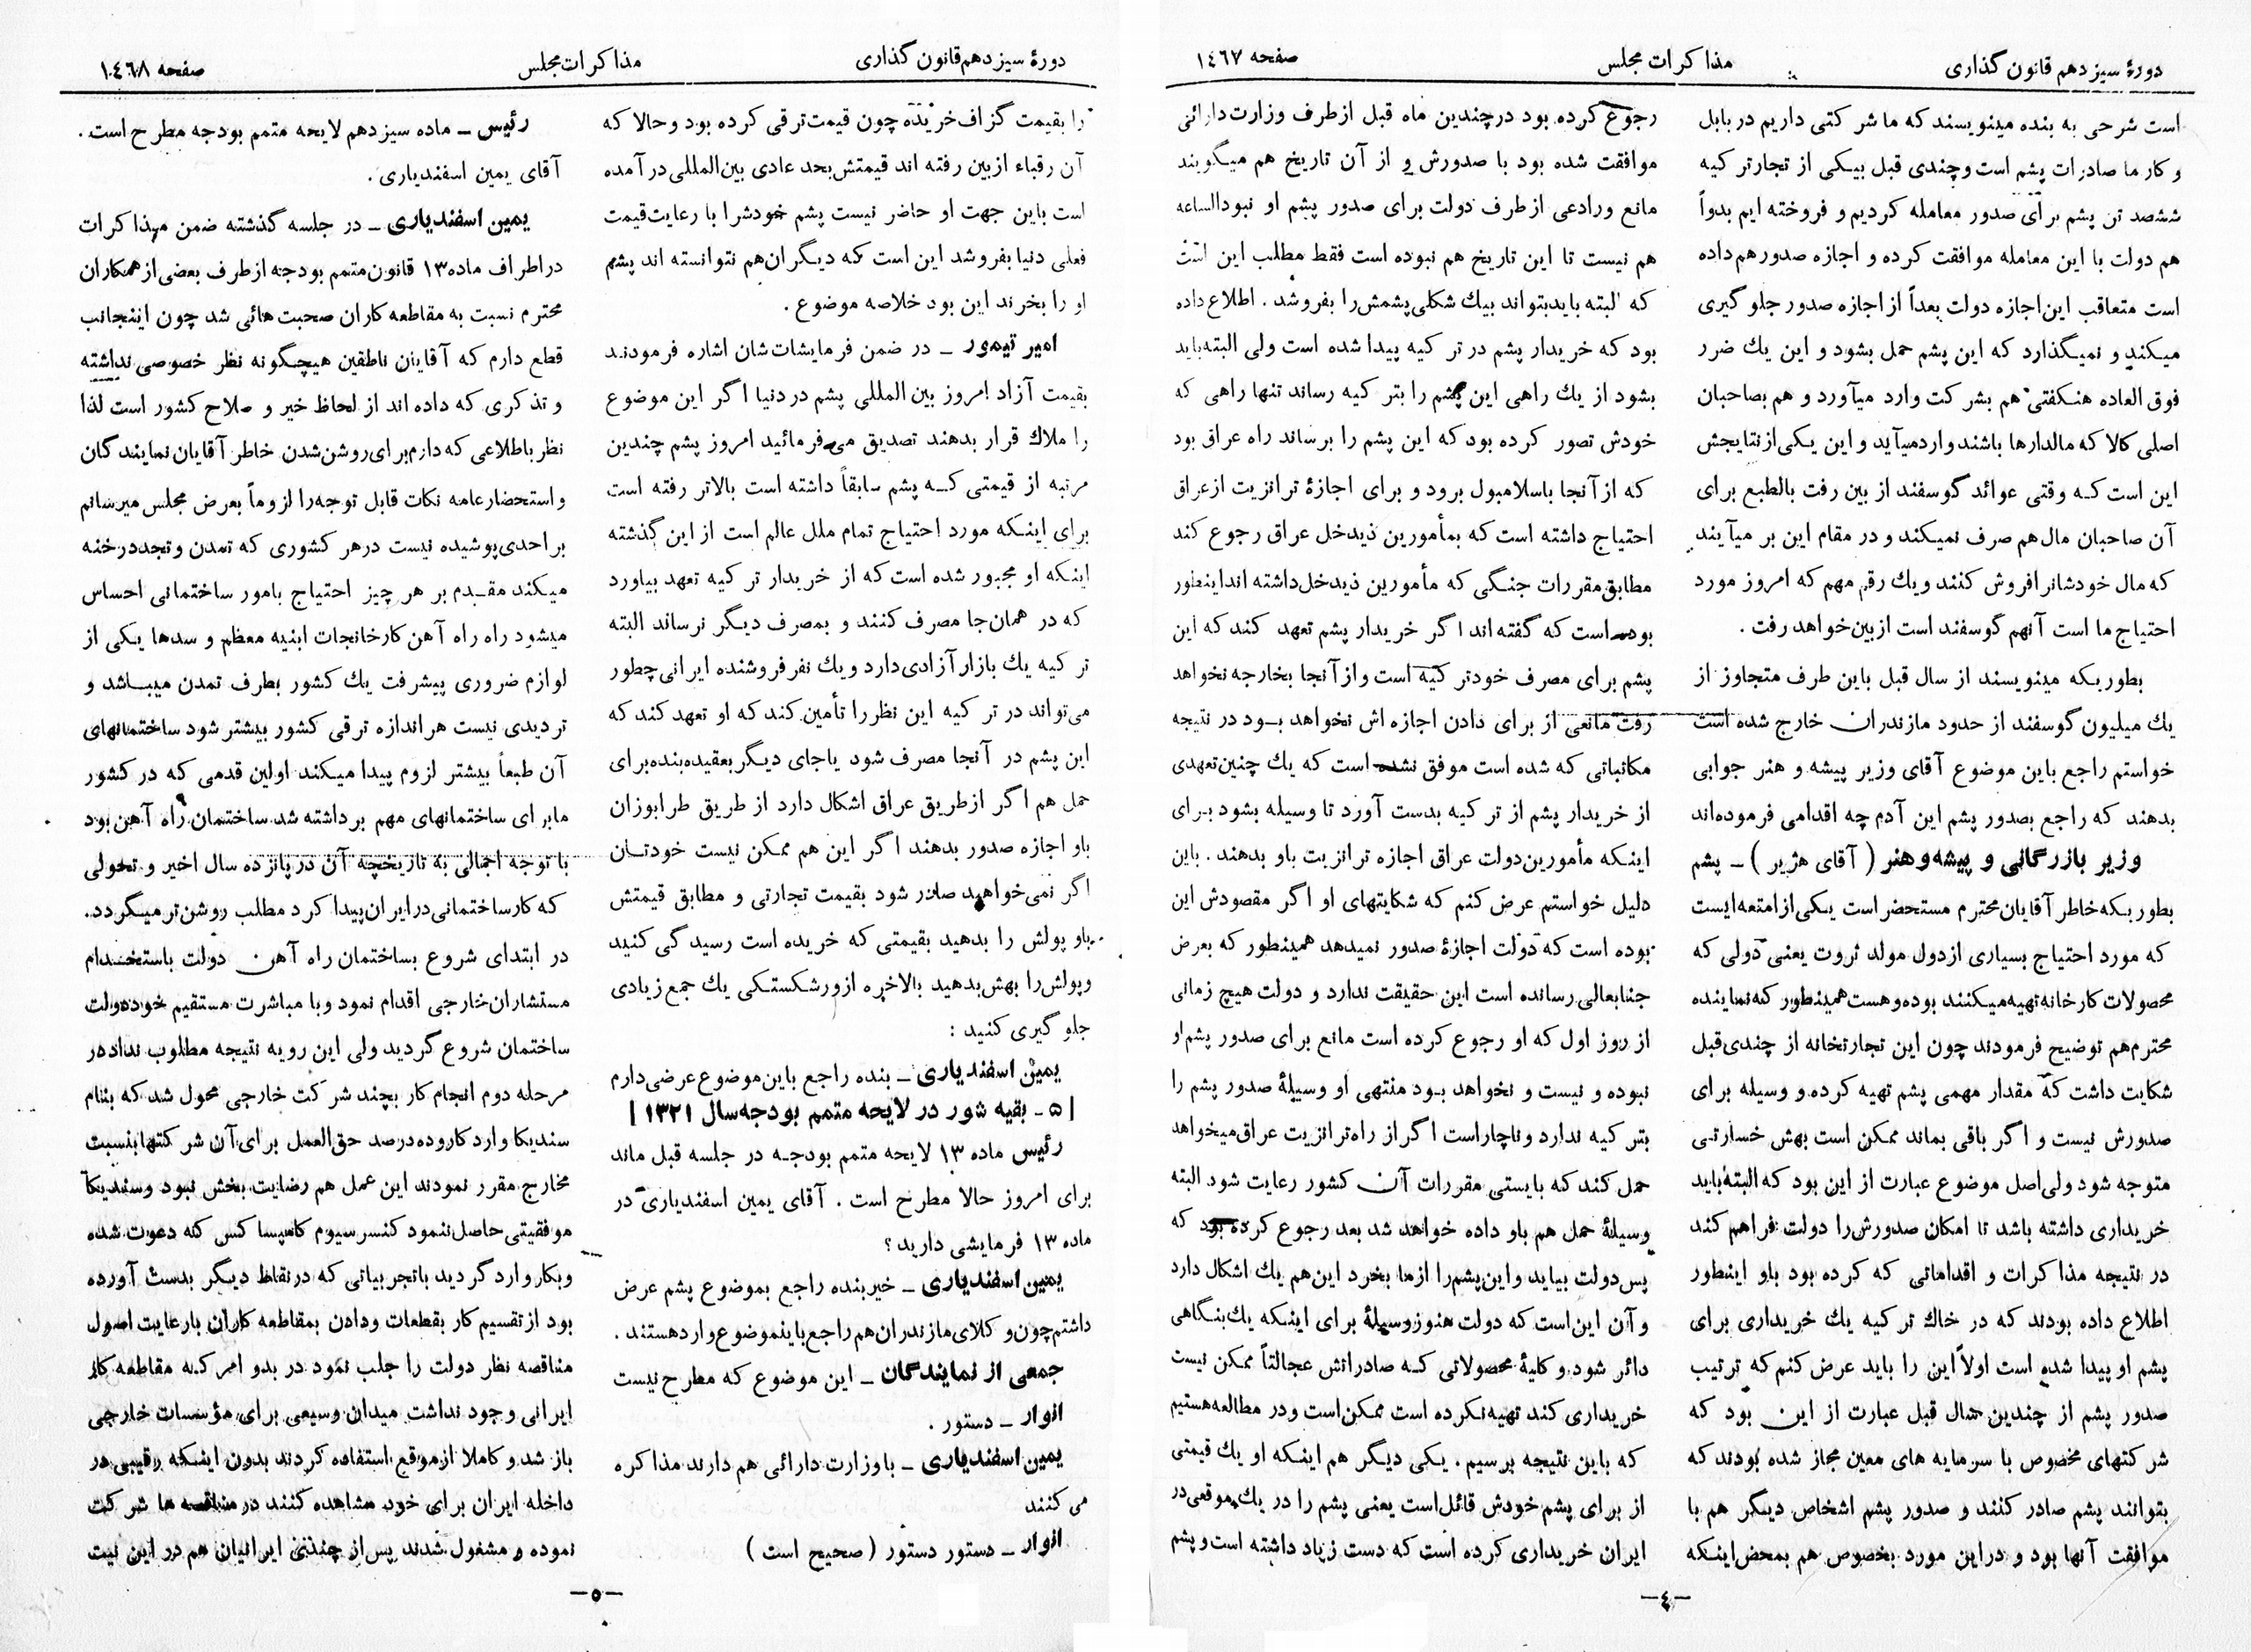 دورهٔ سیزدهم قانون گذاری
مذاکرات مجلس
صفحه ۱٤٦٧
است شرحی به بنده مینویسند که ما شرکتی داریم در بابل
و کار ما صادرات پشم است وچندی قبل بیکی از تجار ترکیه
ششصد تن پشم برای صدور معامله کردیم و فروخته ایم بدواً
هم دولت با این معامله موافقت کرده و اجازه صدور هم داده
است متعاقب این اجازه دولت بعداً از اجازه صدور جلوگیری
میکند و نمیگذارد که این پشم حمل بشود و این یك ضرر
فوق العاده هنگفتی هم بشرکت وارد میآورد و هم بصاحبان
اصلی کالا که مالدارها باشند وارد میآید و این یکی از نتایجش
این است کـه وقتی عوائد گوسفند از بین رفت بالطبع برای
آن صاحبان مال هم صرف نمیکند و در مقام این بر میآیند
که مال خودشانرا فروش کنند و یك رقم مهم که امروز مورد
احتیاج ما است آنهم گوسفند است از بین خواهد رفت .
بطوریکه مینویسند از سال قبل باین طرف متجاوز از
یك میلیون گوسفند از حدود مازندران خارج شده است
خواستم راجع باین موضوع آقای وزیر پیشه و هنر جوابی
بدهند که راجع بصدور پشم این آدم چه اقدامی فرموده‌اند
وزیر بازرگانی و پیشه و هنر ( آقای هژیر ) ـ پشم
بطوریکه خاطر آقایان محترم مستحضر است یکی از امتعه ایست
که مورد احتیاج بسیاری از دول مولد ثروت یعنی دولی که
محصولات کارخانه تهیه میکنند بوده وهست همینطور که نماینده
محترم هم توضیح فرمودند چون این تجارتخانه از چندی قبل
شکایت داشت که مقدار مهمی پشم تهیه کرده و وسیله برای
صدورش نیست و اگر باقی بماند ممکن است بهش خسارتی
متوجه شود ولی اصل موضوع عبارت از این بود که البته باید
خریداری داشته باشد تا امکان صدورش را دولت فراهم کند
در نتیجه مذاکرات و اقداماتی که کرده بود باو اینطور
اطلاع داده بودند که در خاك ترکیه یك خریداری برای
پشم او پیدا شده است اولاً این را باید عرض کنم که ترتیب
صدور پشم از چندین سال قبل عبارت از این بود که
شرکتهای مخصوص با سرمایه های معین مجاز شده بودند که
بتوانند پشم صادر کنند و صدور پشم اشخاص دیگر هم با
موافقت آنها بود و در این مورد بخصوص هم بمحض اینکه
رجوع کرده بود در چندین ماه قبل از طرف وزارت دارائی
موافقت شده بود با صدورش و از آن تاریخ هم میگویند
مانع ورادعی از طرف دولت برای صدور پشم او نبود الساعه
هم نیست تا این تاریخ هم نبوده است فقط مطلب این است
که البته باید بتواند بیك شکلی پشمش را بفروشد . اطلاع داده
بود که خریدار پشم در ترکیه پیدا شده است ولی البته باید
بشود از یك راهی این پشم را بترکیه رساند تنها راهی که
خودش تصور کرده بود که این پشم را برساند راه عراق بود
که از آنجا باسلامبول برود و برای اجازهٔ ترانزیت از عراق
احتیاج داشته است که بمأمورین ذیدخل عراق رجوع کند
مطابق مقررات جنگی که مأمورین ذیدخل داشته اند اینطور
بوده است که گفته اند اگر خریدار پشم تعهد کند که این
پشم برای مصرف خود ترکیه است و از آنجا بخارجه نخواهد
رفت مانعی از برای دادن اجازه اش نخواهد بـود در نتیجه
مکاتباتی که شده است موفق نشده است که یك چنین تعهدی
از خریدار پشم از ترکیه بدست آورد تا وسیله بشود بـرای
اینکه مأمورین دولت عراق اجازه ترانزیت باو بدهند . باین
دلیل خواستم عرض کنم که شکایتهای او اگر مقصودش این
بوده است که دولت اجازهٔ صدور نمیدهد همینطور که بعرض
جنابعالی رسانده است این حقیقت ندارد و دولت هیچ زمانی
از روز اول که او رجوع کرده است مانع برای صدور پشم او
نبوده و نیست و نخواهد بـود منتهی او وسیلهٔ صدور پشم را
بترکیه ندارد و ناچار است اگر از راه ترانزیت عراق میخواهد
حمل کند که بایستی مقررات آن کشور رعایت شود البته
وسیلهٔ حمل هم باو داده خواهد شد بعد رجوع کرده بود که
پس دولت بیاید و این پشم را از ما بخرد این هم یك اشکال دارد
و آن این است که دولت هنوز وسیلهٔ برای اینکه یك بنگاهی
دائر شود و کلیهٔ محصولاتی کـه صادراتش عجالتاً ممکن نیست
خریداری کند تهیه نکرده است ممکن است و در مطالعه هستیم
که باین نتیجه برسیم . یکی دیگر هم اینکه او یك قیمتی
از برای پشم خودش قائل است یعنی پشم را در یك موقعی در
ایران خریداری کرده است که دست زیاد داشته است و پشم
ـ ٤ ـ
دورهٔ سیزدهم قانون گذاری
مذاکرات مجلس
صفحه ۱٤٦۸
را بقیمت گزاف خریده چون قیمت ترقی کرده بود و حالا که
آن رقباء از بین رفته اند قیمتش بحد عادی بین المللی در آمده
است باین جهت او حاضر نیست پشم خودشرا با رعایت قیمت
فعلی دنیا بفروشد این است که دیگران هم نتوانسته اند پشم
او را بخرند این بود خلاصه موضوع .
امیر تیمور ـ در ضمن فرمایشات شان اشاره فرمودند
بقیمت آزاد امروز بین المللی پشم در دنیا اگر این موضوع
را ملاك قرار بدهند تصدیق می‌فرمائید امروز پشم چندین
مرتبه از قیمتی کـه پشم سابقاً داشته است بالاتر رفته است
برای اینکه مورد احتیاج تمام ملل عالم است از این گذشته
اینکه او مجبور شده است که از خریدار ترکیه تعهد بیاورد
که در همان‌جا مصرف کنند و بمصرف دیگر نرساند البته
ترکیه یك بازار آزادی دارد و یك نفر فروشنده ایرانی چطور
می‌تواند در ترکیه این نظر را تأمین کند که او تعهد کند که
این پشم در آنجا مصرف شود یا جای دیگر بعقیده بنده برای
حمل هم اگر از طریق عراق اشکال دارد از طریق طرابوزان
باو اجازه صدور بدهند اگر این هم ممکن نیست خودتـان
اگر نمی‌خواهید صادر شود بقیمت تجارتی و مطابق قیمتش
باو پولش را بدهید بقیمتی که خریده است رسیدگی کنید
و پولش را بهش بدهید بالاخره از ورشکستگی یك جمع زیادی
جلوگیری کنید :
یمین اسفندیاری ـ بنده راجع باین موضوع عرضی دارم
[ ۵ ـ بقیه شور در لایحه متمم بودجه سال ۱۳۲۱ ]
رئیس ماده ۱۳ لایحه متمم بودجـه در جلسه قبل ماند
برای امروز حالا مطرح است . آقای یمین اسفندیاری در
ماده ۱۳ فرمایشی دارید ؟
یمین اسفندیاری ـ خیر بنده راجع بموضوع پشم عرض
داشتم چون وکلای مازندران هم راجع باینموضوع وارد هستند .
جمعی از نمایندگان ـ این موضوع که مطرح نیست
انوار ـ دستور .
یمین اسفندیاری ـ با وزارت دارائی هم دارند مذاکره
می کنند
انوار ـ دستور دستور ( صحیح است )
رئیس ـ ماده سیزدهم لایحه متمم بودجه مطرح است .
آقای یمین اسفندیاری .
یمین اسفندیاری ـ در جلسه گذشته ضمن مذاکرات
در اطراف ماده ۱۳ قانون متمم بودجه از طرف بعضی از همکاران
محترم نسبت به مقاطعه کاران صحبت هائی شد چون اینجانب
قطع دارم که آقایان ناطقین هیچگونه نظر خصوصی نداشته
و تذکری که داده اند از لحاظ خیر و صلاح کشور است لذا
نظر باطلاعی که دارم برای روشن شدن خاطر آقایان نمایندگان
و استحضار عامه نکات قابل توجه را لزوماً بعرض مجلس میرسانم
بر احدی پوشیده نیست در هر کشوری که تمدن و تجدد رخنه
میکند مقـدم بر هر چیز احتیاج بامور ساختمانی احساس
میشود راه راه آهن کارخانجات ابنیه معظم و سدها یکی از
لوازم ضروری پیشرفت یك کشور بطرف تمدن میبـاشد و
تردیدی نیست هر اندازه ترقی کشور بیشتر شود ساختمانهای
آن طبعاً بیشتر لزوم پیدا میکند اولین قدمی که در کشور
ما برای ساختمانهای مهم برداشته شد ساختمان راه آهن بود
با توجه اجمالی به تاریخچه آن در پانزده سال اخیر و تحولی
که کار ساختمانی در ایران پیدا کرد مطلب روشن تر میگردد.
در ابتدای شروع بساختمان راه آهن دولت باستخـدام
مستشاران خارجی اقدام نمود و با مباشرت مستقیم خود دولت
ساختمان شروع گردید ولی این رویه نتیجه مطلوب نداد در
مرحله دوم انجام کار بچند شرکت خارجی محول شد که بنام
سندیکا وارد کار و ده درصد حق العمل برای آن شرکتها بنسبت
مخارج مقرر نمودند این عمل هم رضایت بخش نبود و سندیکا
موفقیتی حاصل ننمود کنسرسیوم کامپسا کس که دعوت شده
و بکار وارد گردید با تجربیاتی که در نقاط دیگر بدست آورده
بود از تقسیم کار بقطعات و دادن بمقاطعه کاران با رعایت اصول
مناقصه نظر دولت را جلب نمود در بدو امر که مقاطعه کار
ایرانی وجود نداشت میدان وسیعی برای مؤسسات خارجی
باز شد و کاملا از موقع استفاده کردند بدون اینکه رقیبی در
داخله ایران برای خود مشاهده کنند در مناقصه ها شرکت
نموده و مشغول شدند پس از چندی ایرانیان هم در این نیت
ـ ٥ ـ